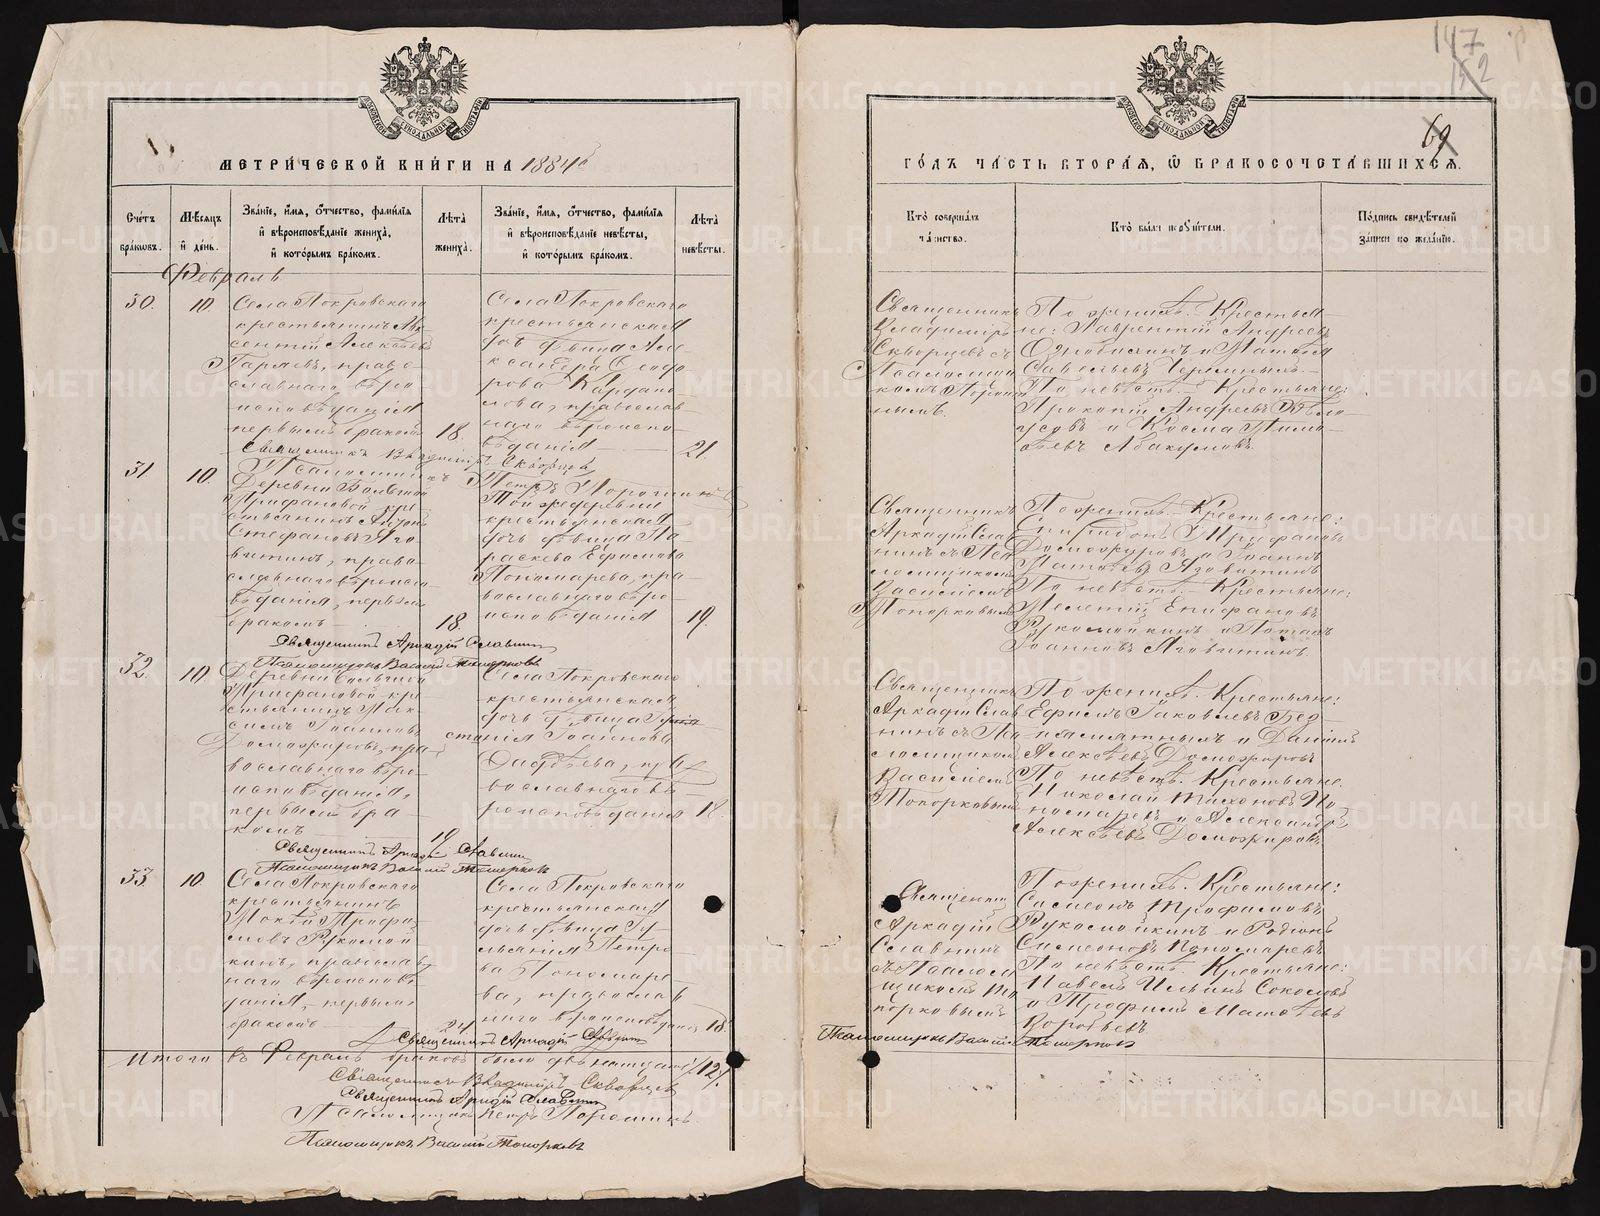 147
152
69
МЕТРИЧЕСКОЙ КНИГИ НА 1884
ГОДЪ ЧАСТЬ ВТОРАЯ, О БРАКОСОЧЕТАВШИХСЯ.
Счетъ браковъ.
Мѣсяцъ и день.
Званіе, имя, отчество, фамилія и вѣроисповѣданіе жениха, и которымъ бракомъ.
Лѣта жениха.
Званіе, имя, отчество, фамилія и вѣроисповѣданіе невѣсты, и которымъ бракомъ.
Лѣта невѣсты.
Кто совершалъ таинство.
Кто были поручители.
Подпись свидѣтелей записи по желанію.
Февраль
30.
10.
Села Покровскаго
крестьянинъ Ав-
сентій Алексѣевъ
Парѧевъ, право-
славнаго вѣро-
исповѣданія
первымъ бракомъ
18.
Села Покровскаго
крестьянская
дочь дѣвица Але-
ксандра Ѳеодо-
рова
православ-
наго вѣроиспо-
вѣданія
21.
Священникъ
Владиміръ
Скворцевъ съ
Псаломщи-
комъ Порош-
нымъ.
По женихѣ: Крестья-
не: Лаврентій Андреевъ
и Матвѣй
Савельевъ
По невѣстѣ: Крестьяне:
Прокопій Андреевъ Бѣло-
усовъ и Косма Тимо-
ѳеевъ Абакумовъ.
Священникъ Владиміръ Скворцевъ
Псаломщикъ Петръ Порошинъ
31
10.
Деревни Большой
Трифановой кре-
стьянинъ Антонъ
Стефановъ Яго-
витинъ, право-
славнаго вѣроиспо-
вѣданія, первымъ
бракомъ
18.
Той же деревни
крестьянская
дочь дѣвица Па-
раскева Ефимова
Пономарева, пра-
вославнаго вѣро-
исповѣданія
19.
Священникъ
Аркадій Слав-
нинъ съ Пса-
ломщикомъ
Василіемъ
Топорковымъ
По женихѣ: Крестьяне:
Спиридонъ Трифоновъ
Доможировъ и Іоаннъ
Матѳеевъ Язовитинъ
По невѣстѣ: Крестьяне:
Мелетій Епифановъ
Рукомойкинъ и Потапъ
Іоанновъ Яговитинъ.
Священникъ Аркадій Славнинъ
Псаломщикъ Василій Топорковъ
32.
10
Деревни Большой
Трифановой кре-
стьянинъ Мак-
симъ Іоанновъ
Доможировъ, пра-
вославнаго вѣро-
исповѣданія,
первымъ бра-
комъ
19
Села Покровскаго
крестьянская
дочь дѣвица
стинія Іоаннова
Ѳадѣева, пра-
вославнаго вѣ-
роисповѣданія
18.
Священникъ
Аркадій Слав-
нинъ съ Пса-
ломщикомъ
Василіемъ
Топорковымъ
По женихѣ: Крестьяне:
Ефимъ Іаковлевъ Без-
памятныхъ и Даніилъ
Алексѣевъ Доможировъ
По невѣстѣ: Крестьяне.
Николай Тихоновъ По-
номаревъ и Александръ
Алексѣевъ Доможировъ.
Священникъ Аркадій Славнинъ
Псаломщикъ Василій Топорковъ
33.
10.
Села Покровскаго
крестьянинъ
Мокій Трофи-
мовъ Рукомой-
кинъ, православ-
наго вѣроисповѣ-
данія, первымъ
бракомъ
24
Села Покровскаго
крестьянская
дочь дѣвица Іу-
ліанія Петро-
ва Пономаре-
ва, православ-
наго вѣроисповѣданія
18.
Священникъ
Аркадій
Славнинъ
съ Псалом-
щикомъ То-
порковымъ
По женихѣ: Крестьяне:
Симеонъ Трофимовъ
Рукомойкинъ и Родіонъ
Симеоновъ Пономаревъ
По невѣстѣ: Крестьяне:
Павелъ Ильинъ Соколовъ
и Трофимъ Матѳеевъ
Воробьевъ
Священникъ Аркадій Славнинъ
Псаломщикъ Василій Топорковъ
Итого въ Февралѣ браковъ было двѣнадцать /12/.
Священникъ Владиміръ Скворцевъ
Священникъ Аркадій Славнинъ
Псаломщикъ Петръ Порошинъ.
Псаломщикъ Василій Топорковъ
METRIKI.GASO-URAL.RU